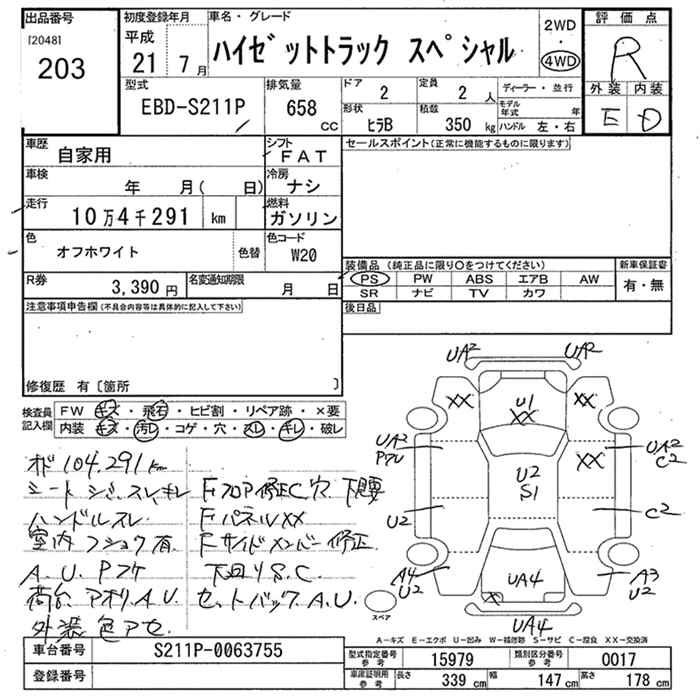 出品番号
[2048]
203
初度登録年月
平成
21 7月
車名・グレード
ハイゼットトラック スペシャル
2WD
・
4WD
評価点
R
外装 内装
E D
型式
EBD-S211P
排気量
658 cc
ドア
2
定員
2 人
形状
ヒラB
積数
350 kg
ディーラー・並行
モデル年式 年
ハンドル 左・右
車歴
自家用
シフト
FAT
車検
年 月( 日)
冷房
ナシ
走行
10万4千291 km
燃料
ガソリン
色
オフホワイト
色替
色コード
W20
R券
3,390円
名変通知期限
月 日
セールスポイント(正常に機能するものに限ります)
装備品(純正品に限り○をつけてください)
PS PW ABS エアB AW
SR ナビ TV カワ
新車保証書
有・無
後日品
注意事項申告欄(不具合内容等は具体的に記入して下さい)
修復歴 有〔箇所 〕
検査員記入欄
FW キズ・飛石・ヒビ割・リペア跡・×要
内装 キズ・汚レ・コゲ・穴・スレ・キレ・破レ
メーター 104,291km
シート シミ、スレ、キレ
ハンドルスレ
室内 フショク有
A.U. Pフケ
荷台 アオリ A.U
外装 色アセ
Fフロア修正C穴 下腰
FパネルXX
Fサイドメンバー修正
下回りS.C.
セットバック A.U.
UA2
UA2
XX
U1
XX
UA2
Pアレ
XX
UA2
C2
U2
S1
U2
C2
A4
U2
UA4
X
A3
U2
UA4
スペア
A-キズ E-エクボ U-凹み W-補修跡 S-サビ C-腐食 XX-交換済
車台番号
S211P-0063755
登録番号
型式指定番号 参考
15979
類別区分番号 参考
0017
車庫証明用 参考
長さ 339 cm
幅 147 cm
高さ 178 cm